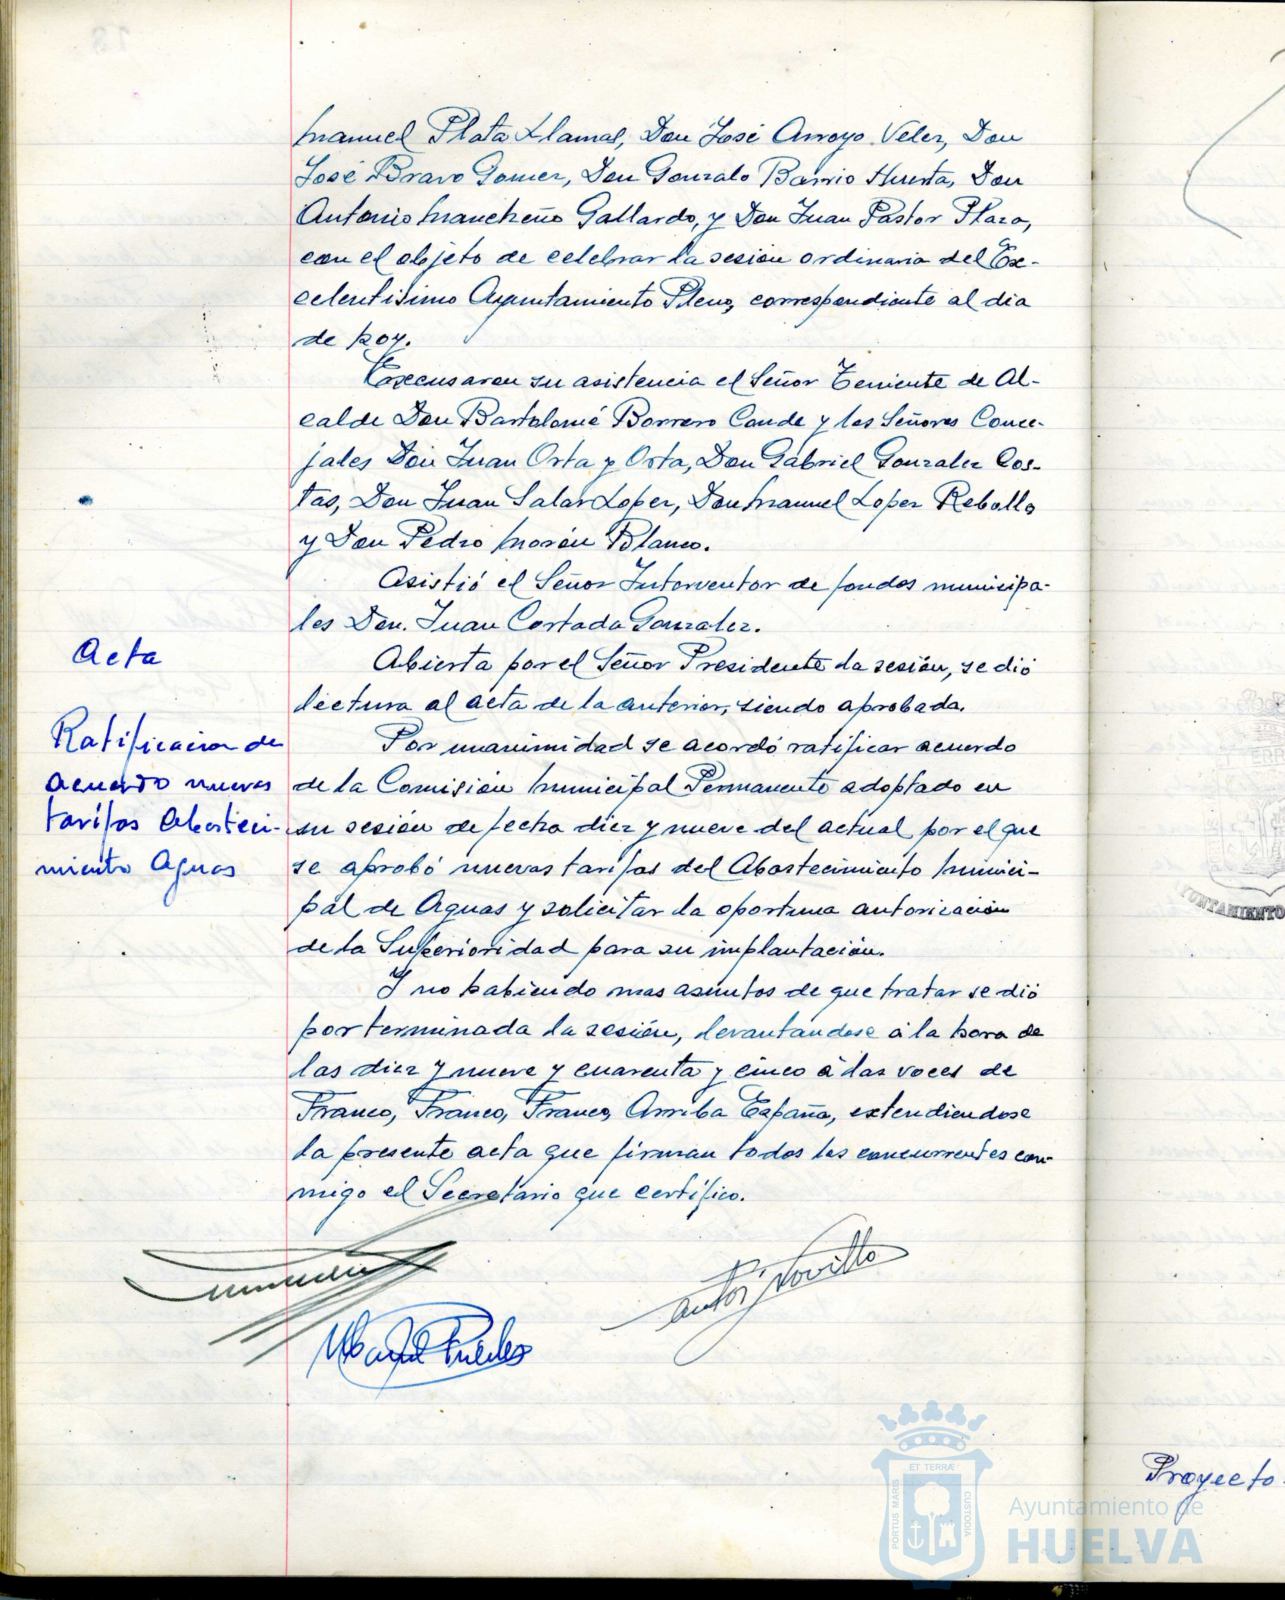 Manuel Plata Llamas, Don José Arroyo Velez, Don
José Bravo Gomez, Don Gonzalo Barrio Huerta, Don
Antonio Mancheño Gallardo, y Don Juan Pastor Plaza,
con el objeto de celebrar la sesión ordinaria del Ex-
celentisimo Ayuntamiento Pleno, correspondiente al dia
de hoy.
Excusaron su asistencia el Señor Teniente de Al-
calde Don Bartolomé Borrero Conde y los Señores Conce-
jales Don Juan Orta y Orta, Don Gabriel Gonzalez Cos-
tas, Don Juan Salas Lopez, Don Manuel Lopez Rebollo
y Don Pedro Morón Blanco.
Asistió el Señor Interventor de fondos municipa-
les Don. Juan Cortada Gonzalez.
Acta
Abierta por el Señor Presidente la sesión, se dió
lectura al acta de la anterior, siendo aprobada.
Ratificacion de
acuerdo nuevas
tarifas Abasteci-
miento Aguas
Por unanimidad se acordó ratificar acuerdo
de la Comisión Municipal Permanente adoptado en
su sesión de fecha diez y nueve del actual por el que
se aprobó nuevas tarifas del Abastecimiento Munici-
pal de Aguas y solicitar la oportuna autorización
de la Superioridad para su implantación.
Y no habiendo mas asuntos de que tratar se dió
por terminada la sesión, levantandose á la hora de
las diez y nueve y cuarenta y cinco á las voces de
Franco, Franco, Franco, Arriba España, extendiendose
la presente acta que firman todos los concurrentes con-
migo el Secretario que certifico.
PORTUS MARIS
ET TERRÆ
CUSTODIA
Ayuntamiento de
HUELVA
Proyecto